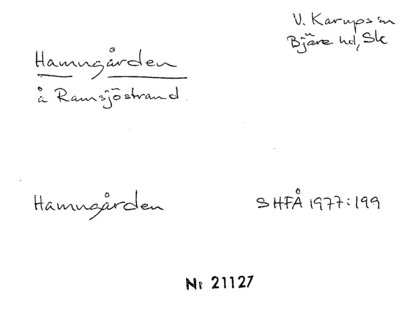 V. Karups sn
Bjäre hd, Sk
Hamngården
å Ramsjöstrand
Hamngården
SHFÅ 1977:199
Nr 21127